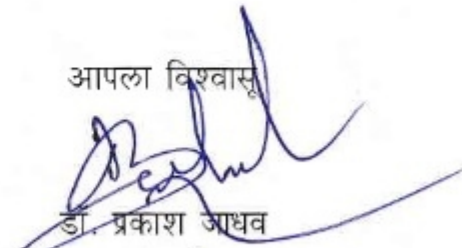 आपला विश्वासू
डॉ. प्रकाश जाधव